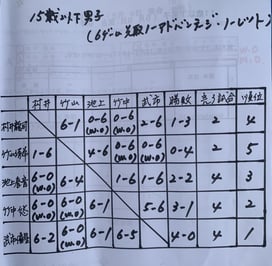 15歳以下男子
(6ゲーム先取ノーアドバンテージ・ノーレット)
村井 竹山 池上 竹中 武市 勝敗 完了試合 順位
村井 6-1 0-6 (w.o) 0-6 (w.o) 2-6 1-3 2 4
竹山 1-6 4-6 0-6 (w.o) 0-6 (w.o) 0-4 2 5
池上 6-0 (w.o) 6-4 1-6 1-6 2-2 4 3
竹中 6-0 (w.o) 6-0 (w.o) 6-1 5-6 3-1 4 2
武市 6-2 6-0 (w.o) 6-1 6-5 4-0 4 1